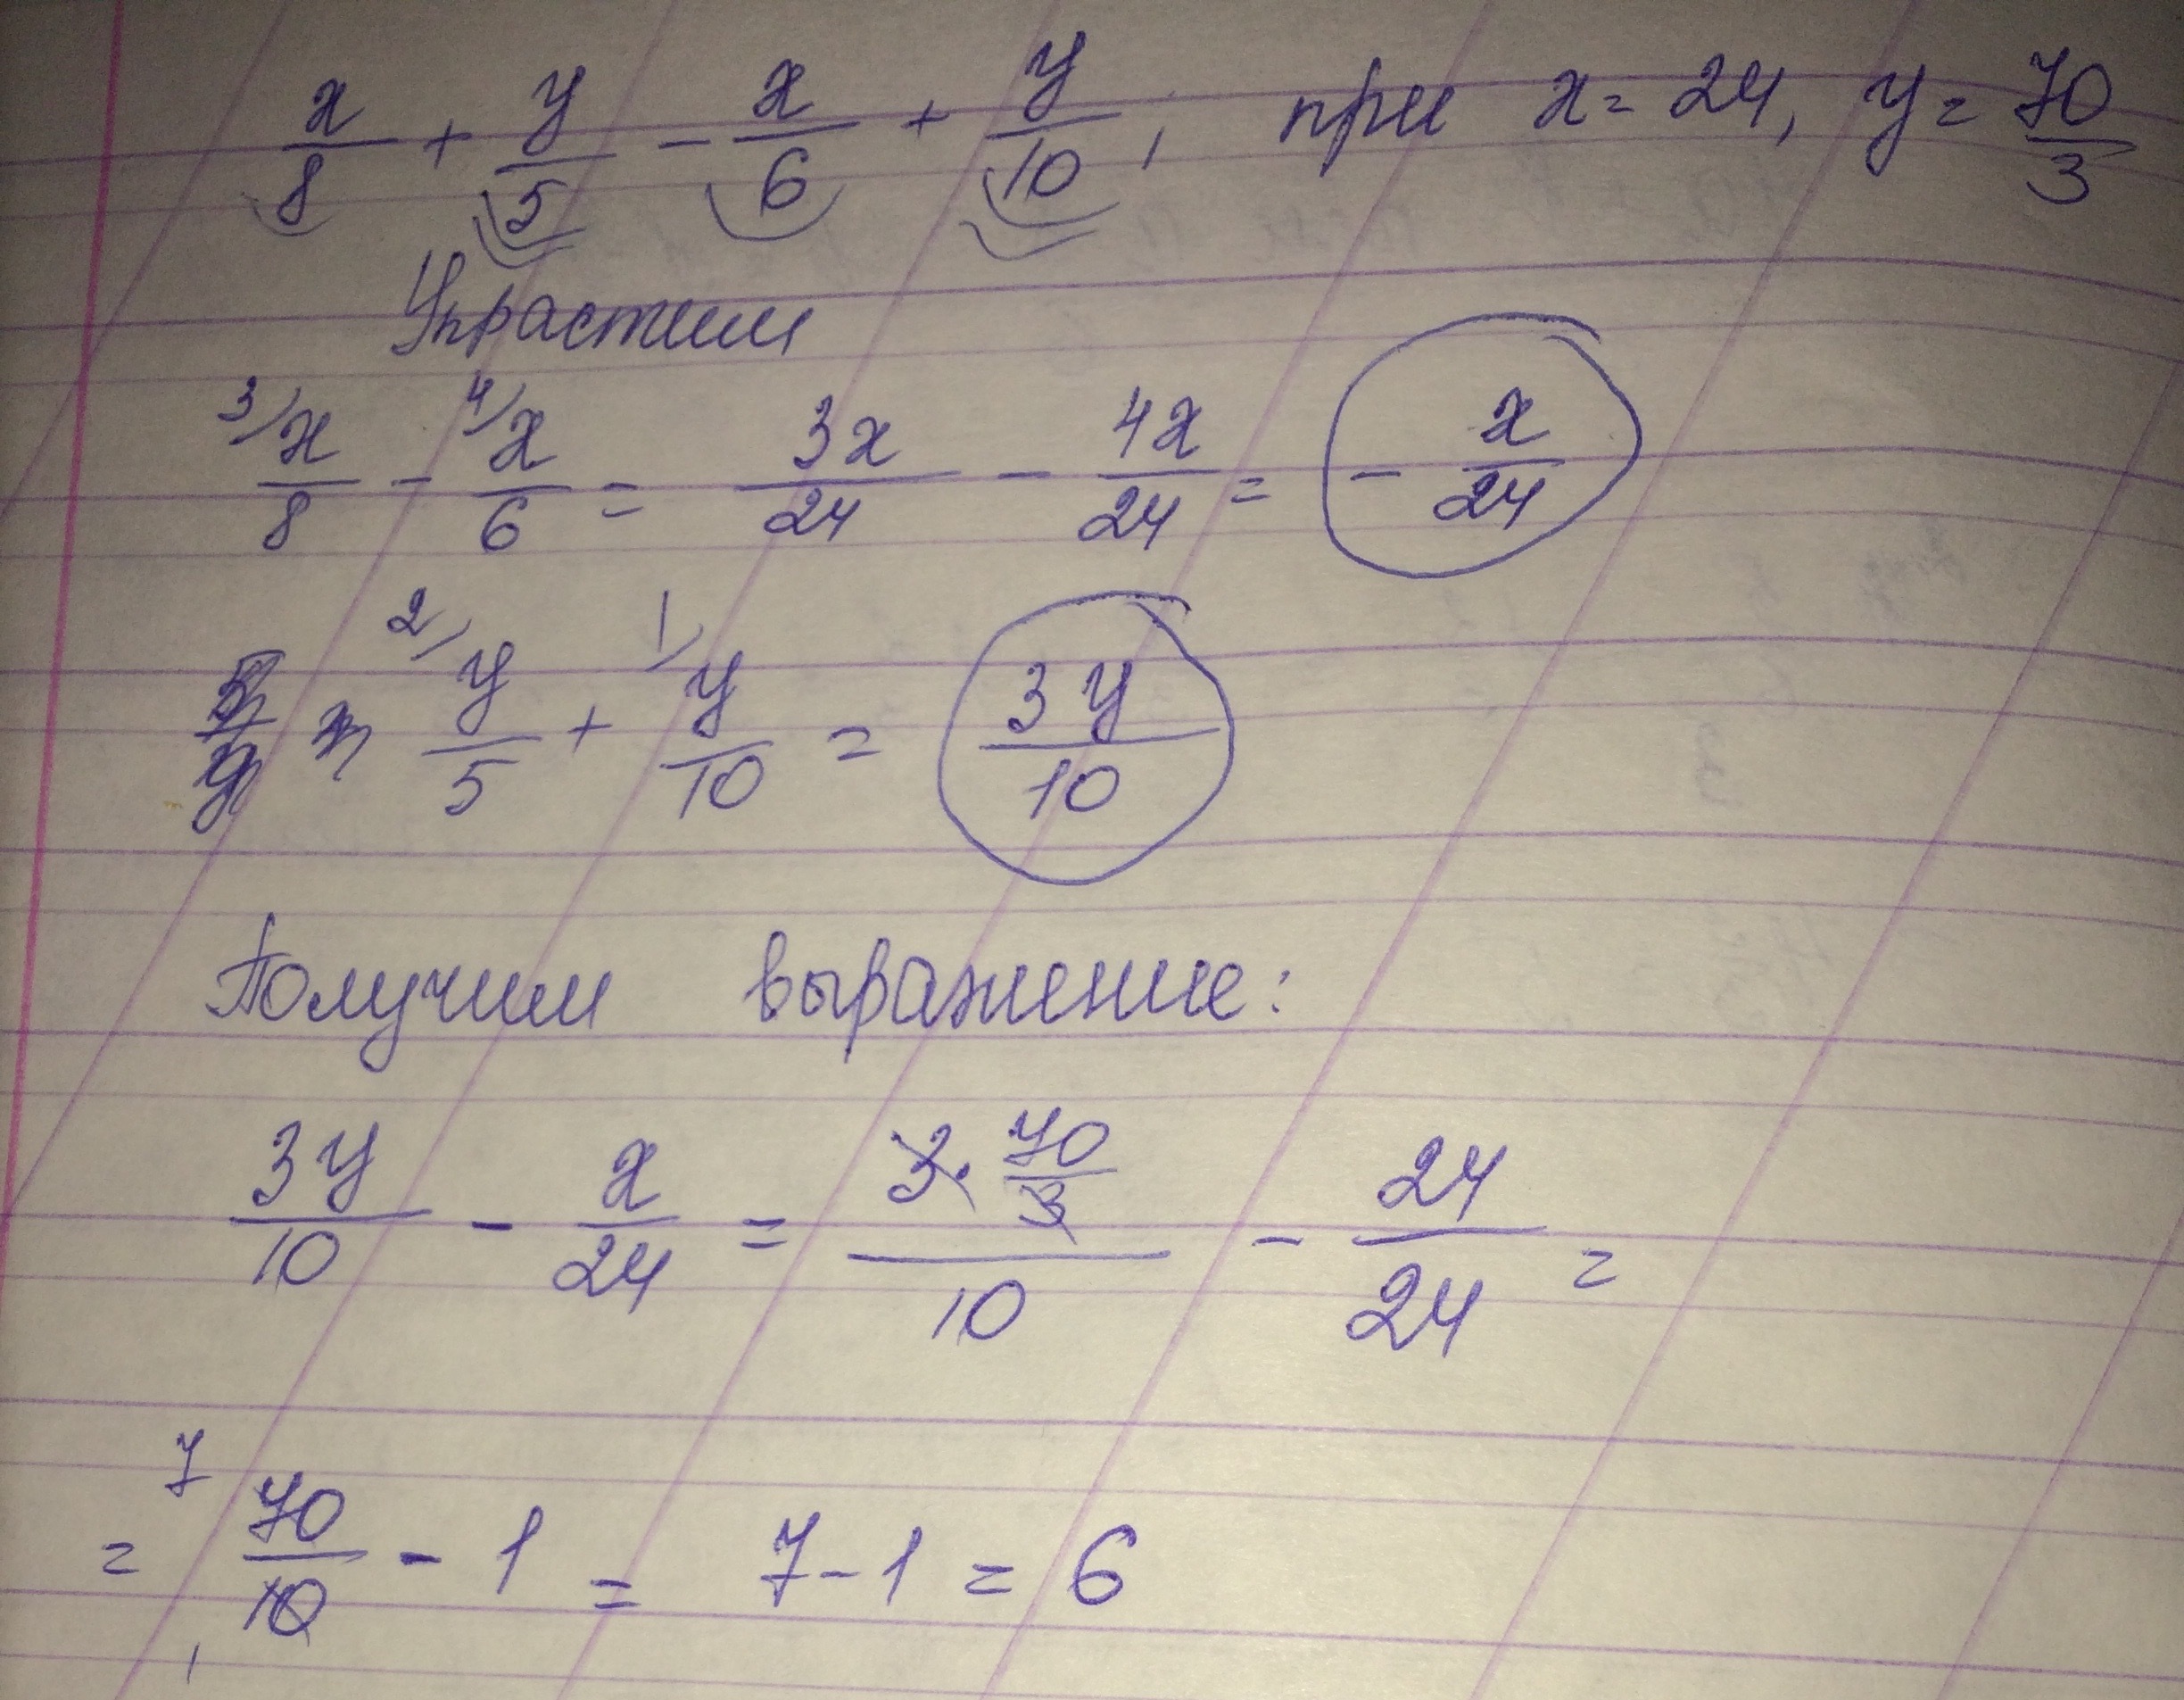 x/8 + y/5 - x/6 + y/10, при x = 24, y = 70/3
Упрастим
3/ x/8 - 4/ x/6 = 3x/24 - 4x/24 = - x/24
2/ y/5 + 1/ y/10 = 3y/10
Получим выражение:
3y/10 - x/24 = (3 · 70/3)/10 - 24/24 =
= 7 70/10 - 1 = 7 - 1 = 6
1